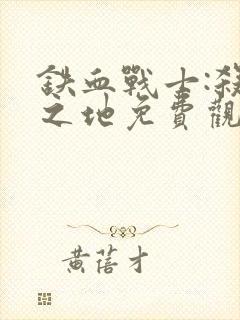 鉄血戰士:殺
之地免費觀
黃蓓才